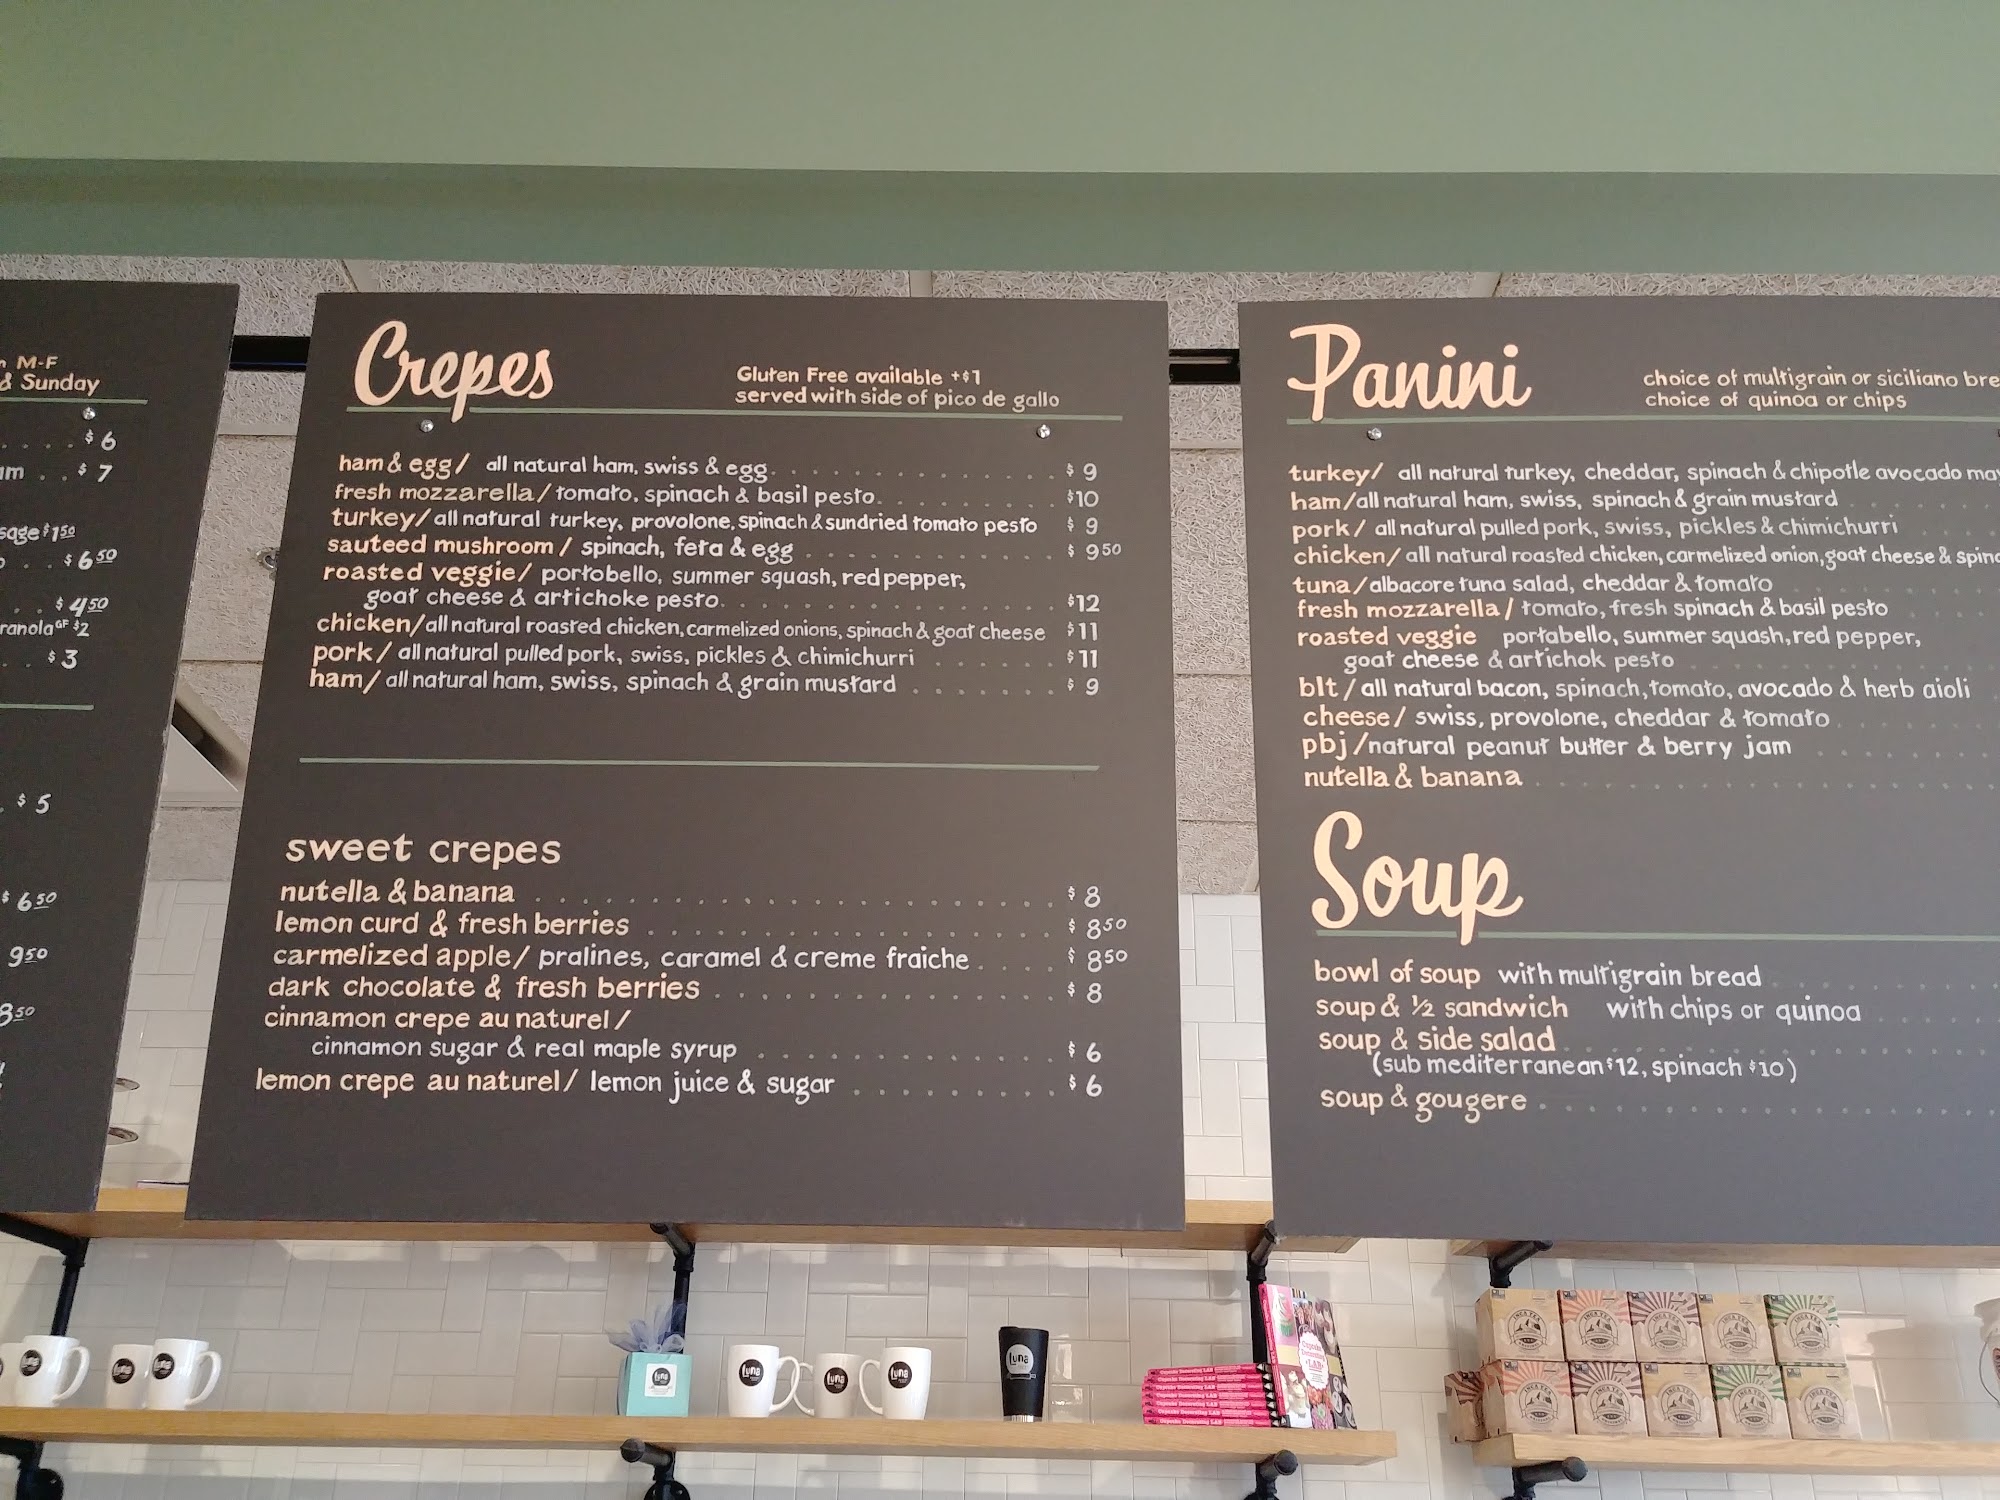 M-F
& Sunday
$6
$7
$1.50
$6.50
$4.50
$2
$3
$5
$6.50
9.50
8.50
Crepes
Gluten Free available +$1
served with side of pico de gallo
ham & egg/ all natural ham, swiss & egg. $9
fresh mozzarella/tomato, spinach & basil pesto. $10
turkey/all natural turkey, provolone, spinach & sundried tomato pesto $9
sauteed mushroom/ spinach, feta & egg $9.50
roasted veggie/ portobello, summer squash, red pepper,
goat cheese & artichoke pesto. $12
chicken/all natural roasted chicken, carmelized onions, spinach & goat cheese $11
pork/ all natural pulled pork, swiss, pickles & chimichurri $11
ham/ all natural ham, swiss, spinach & grain mustard $9
sweet crepes
nutella & banana $8
lemon curd & fresh berries $8.50
carmelized apple/ pralines, caramel & creme fraiche $8.50
dark chocolate & fresh berries $8
cinnamon crepe au naturel/
cinnamon sugar & real maple syrup $6
lemon crepe au naturel/ lemon juice & sugar $6
Panini
choice of multigrain or siciliano
choice of quinoa or chips
turkey/ all natural turkey, cheddar, spinach & chipotle avocado
ham/all natural ham, swiss, spinach & grain mustard
pork/ all natural pulled pork, swiss, pickles & chimichurri
chicken/ all natural roasted chicken, carmelized onion, goat cheese &
tuna/albacore tuna salad, cheddar & tomato
fresh mozzarella/ tomato, fresh spinach & basil pesto
roasted veggie portabello, summer squash, red pepper,
goat cheese & artichok pesto
blt/all natural bacon, spinach, tomato, avocado & herb aioli
cheese/ swiss, provolone, cheddar & tomato
pbj/natural peanut butter & berry jam
nutella & banana
Soup
bowl of soup with multigrain bread
soup & 1/2 sandwich with chips or quinoa
soup & side salad
(sub mediterranean $12, spinach $10)
soup & gougere
luna
luna
luna
luna
luna
luna
luna
Cupcake Decorating LAB
Cupcake
Decorating
LAB